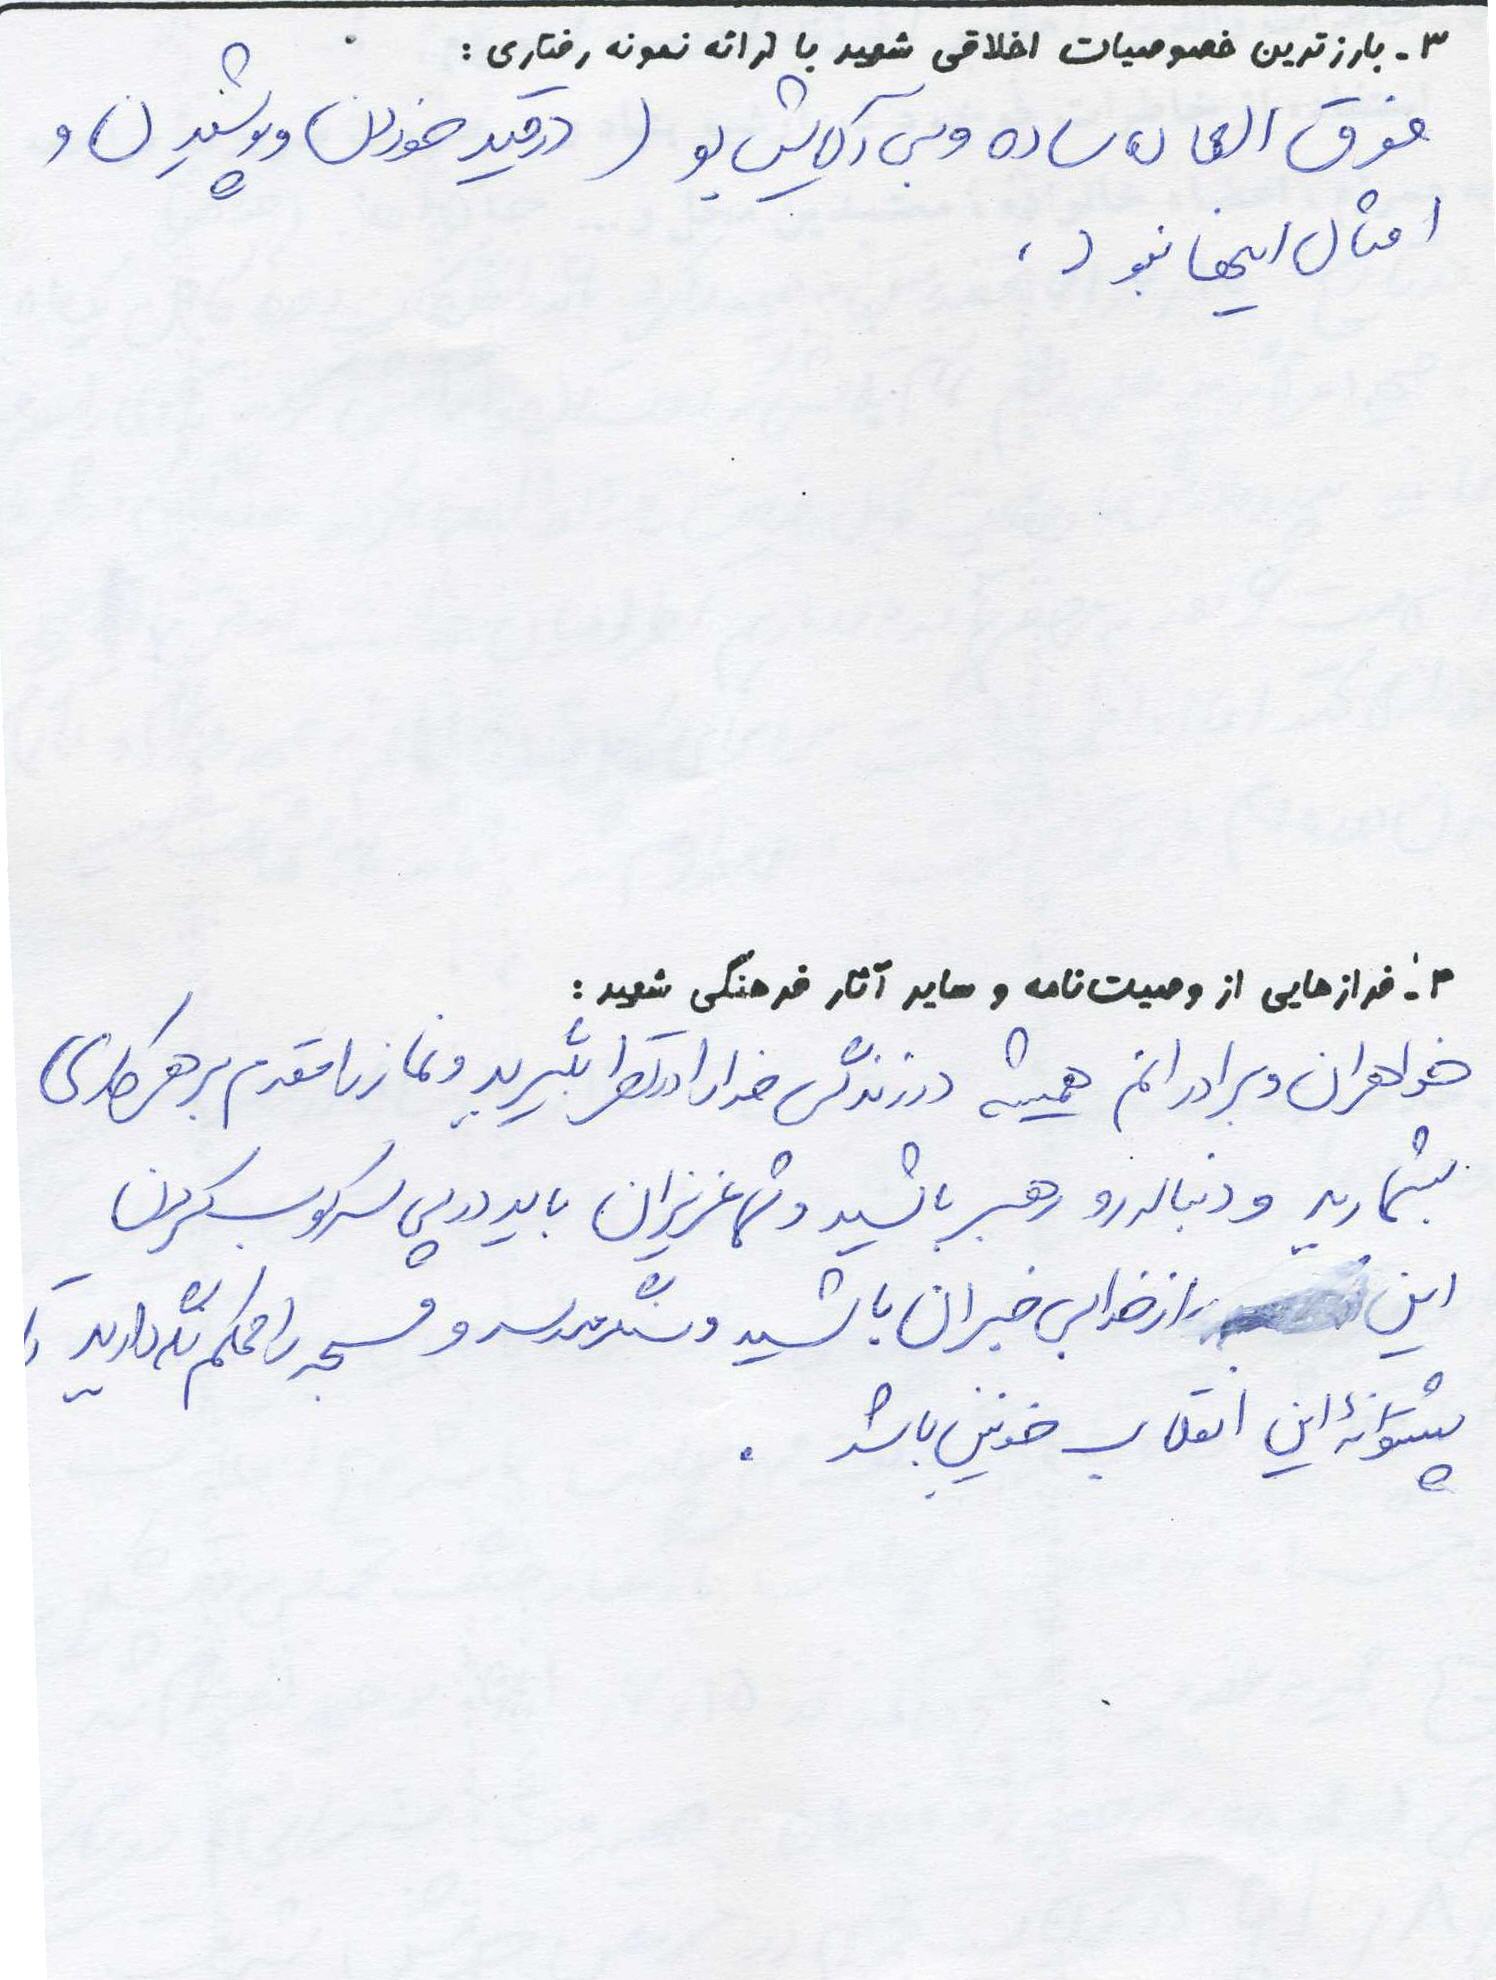 ۳ـ بارزترین خصوصیات اخلاقی شهید با ارائه نمونه رفتاری :
فوق العاده ساده و بی آلایش بود در قید خوردن و پوشیدن و
امثال اینها نبود .
۴ـ فرازهایی از وصیت‌نامه و سایر آثار فرهنگی شهید :
خواهران و برادرانم همیشه در زندگی خدا را در نظر بگیرید و نماز را مقدم بر هر کاری
بشمارید و دنباله رو رهبر باشید و شما عزیزان باید در پی سرکوب کردن
این از خدا بی خبران باشید و سنگر مدرسه و مسجد را محکم نگه دارید
پشتوانهٔ این انقلاب خونین باشد .